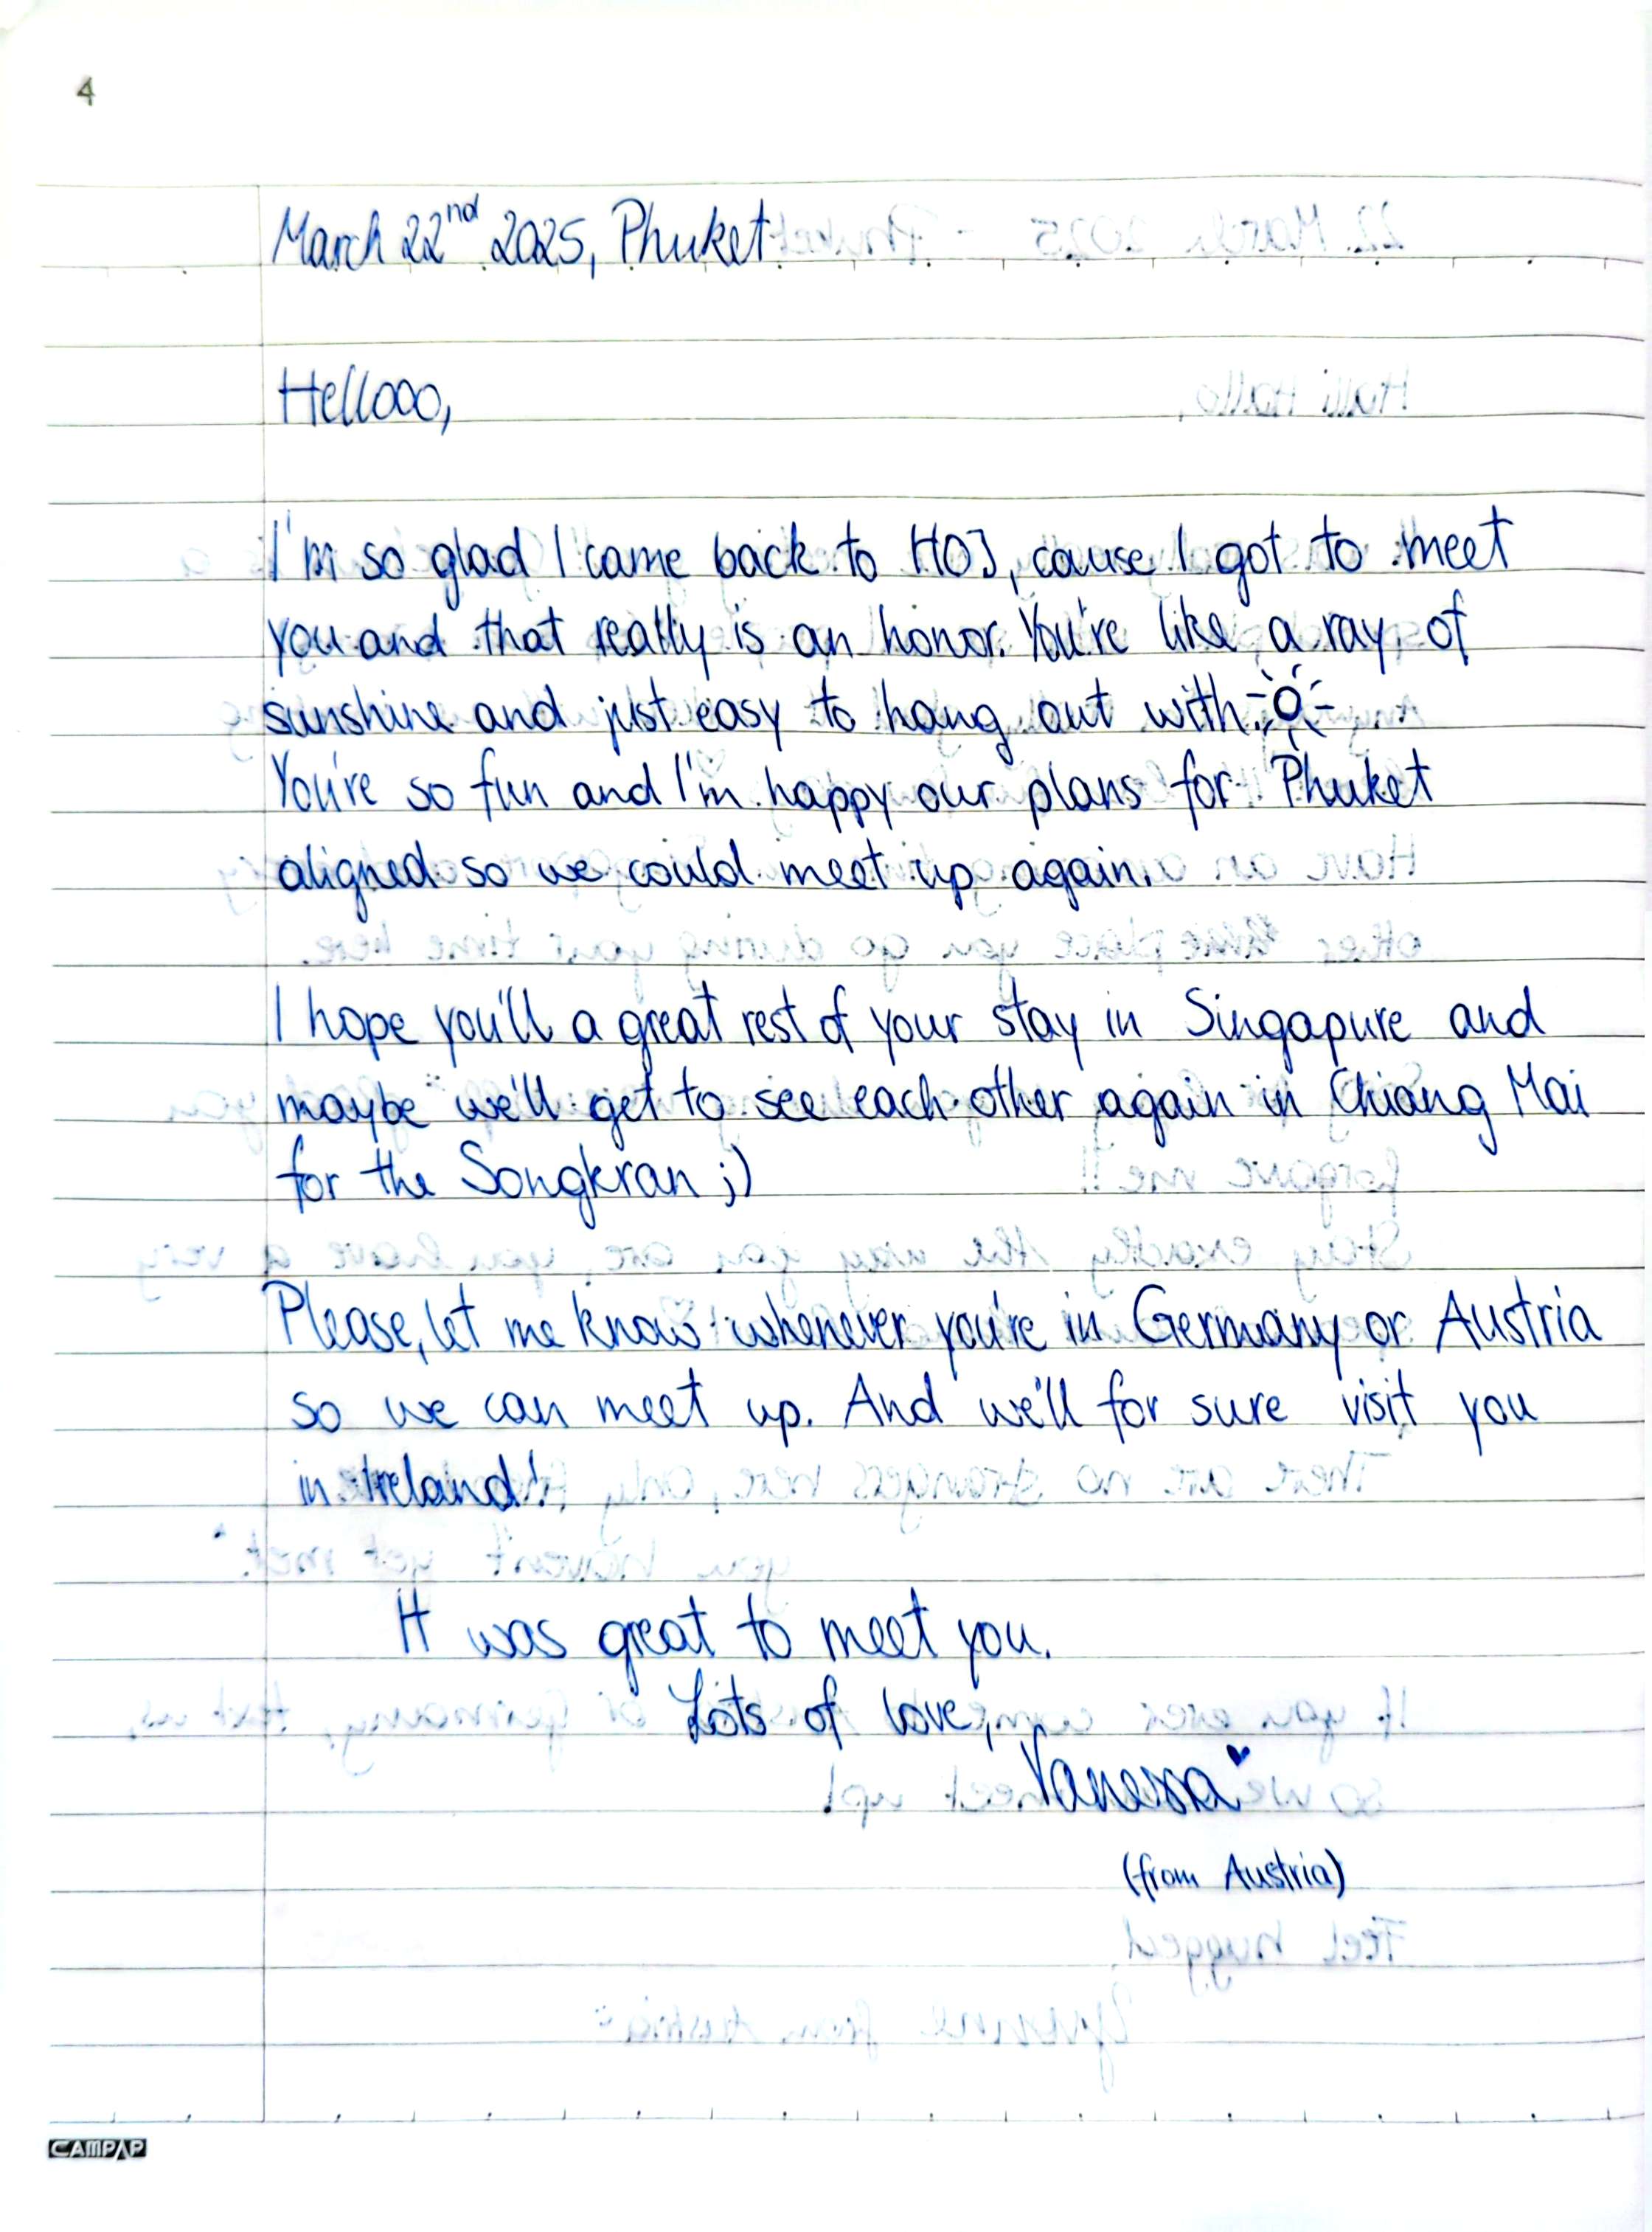 4
March 22nd 2025, Phuket
Hellooo,
I'm so glad I came back to HOJ, cause I got to meet
you and that really is an honor. You're like a ray of
sunshine and just easy to hang out with.
You're so fun and I'm happy our plans for Phuket
aligned so we could meet up again.
I hope you'll a great rest of your stay in Singapure and
maybe we'll get to see each other again in Chiang Mai
for the Songkran ;)
Please, let me know whenever you're in Germany or Austria
so we can meet up. And we'll for sure visit you
in Ireland!
It was great to meet you.
Lots of love,
Vanessa
(from Austria)
CAMPAP